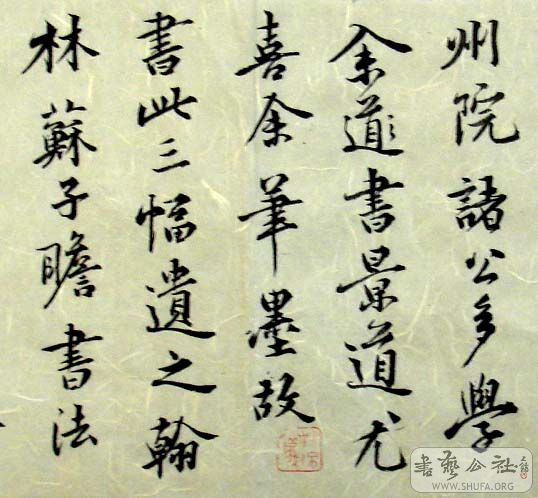 州院諸公多學
余道書景道尤
喜余筆墨故
書此三幅遺之翰
林蘇子瞻書法
書藝公社
WWW.SHUFA.ORG